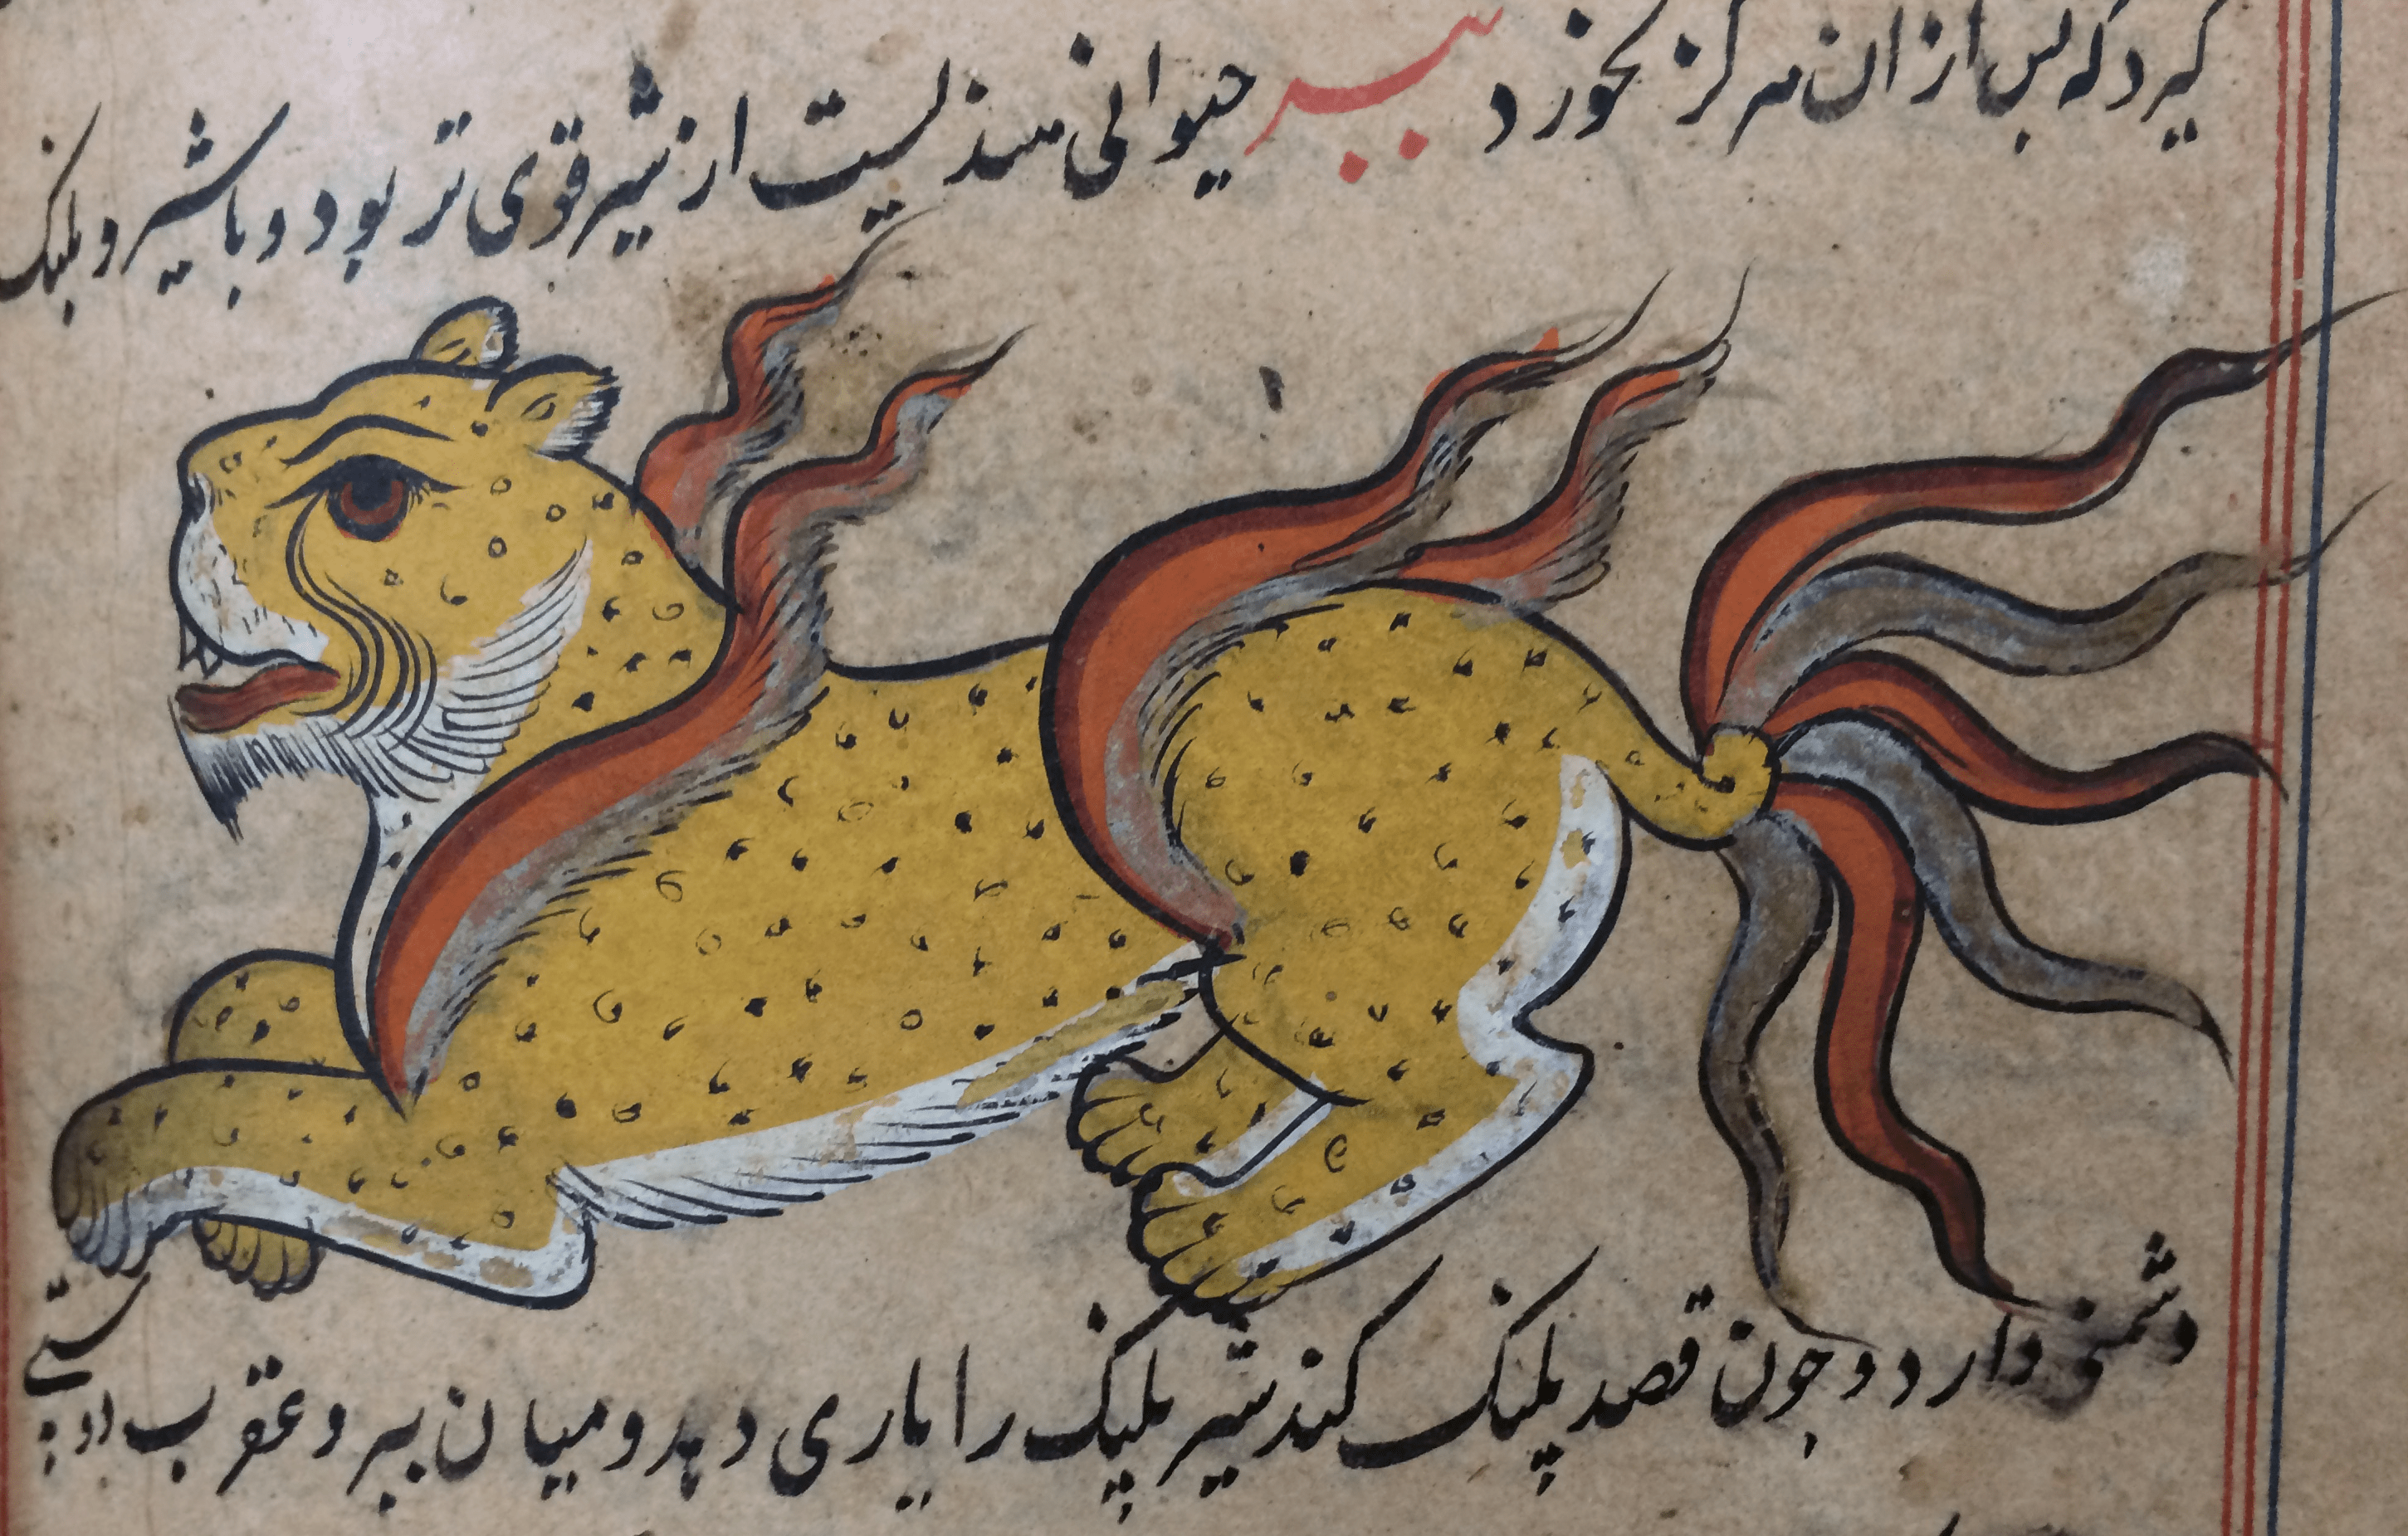 گیرد که بس از ان هرگز نخورد ببر حیوانی هندیست از شیر قوی تر بود و با شیر و بلنک
دشمنی دارد و جون قصد پلنک کند شیر پلنک را یاری دهد و میان ببر و عقرب دوستی